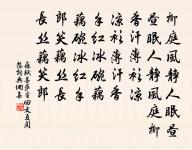 柳庭風靜人眠晝
晝眠人靜風庭柳
香汗薄衫涼
涼衫薄汗香
手紅冰碗藕
藕碗冰紅手
郎笑藕絲長
長絲藕笑郎